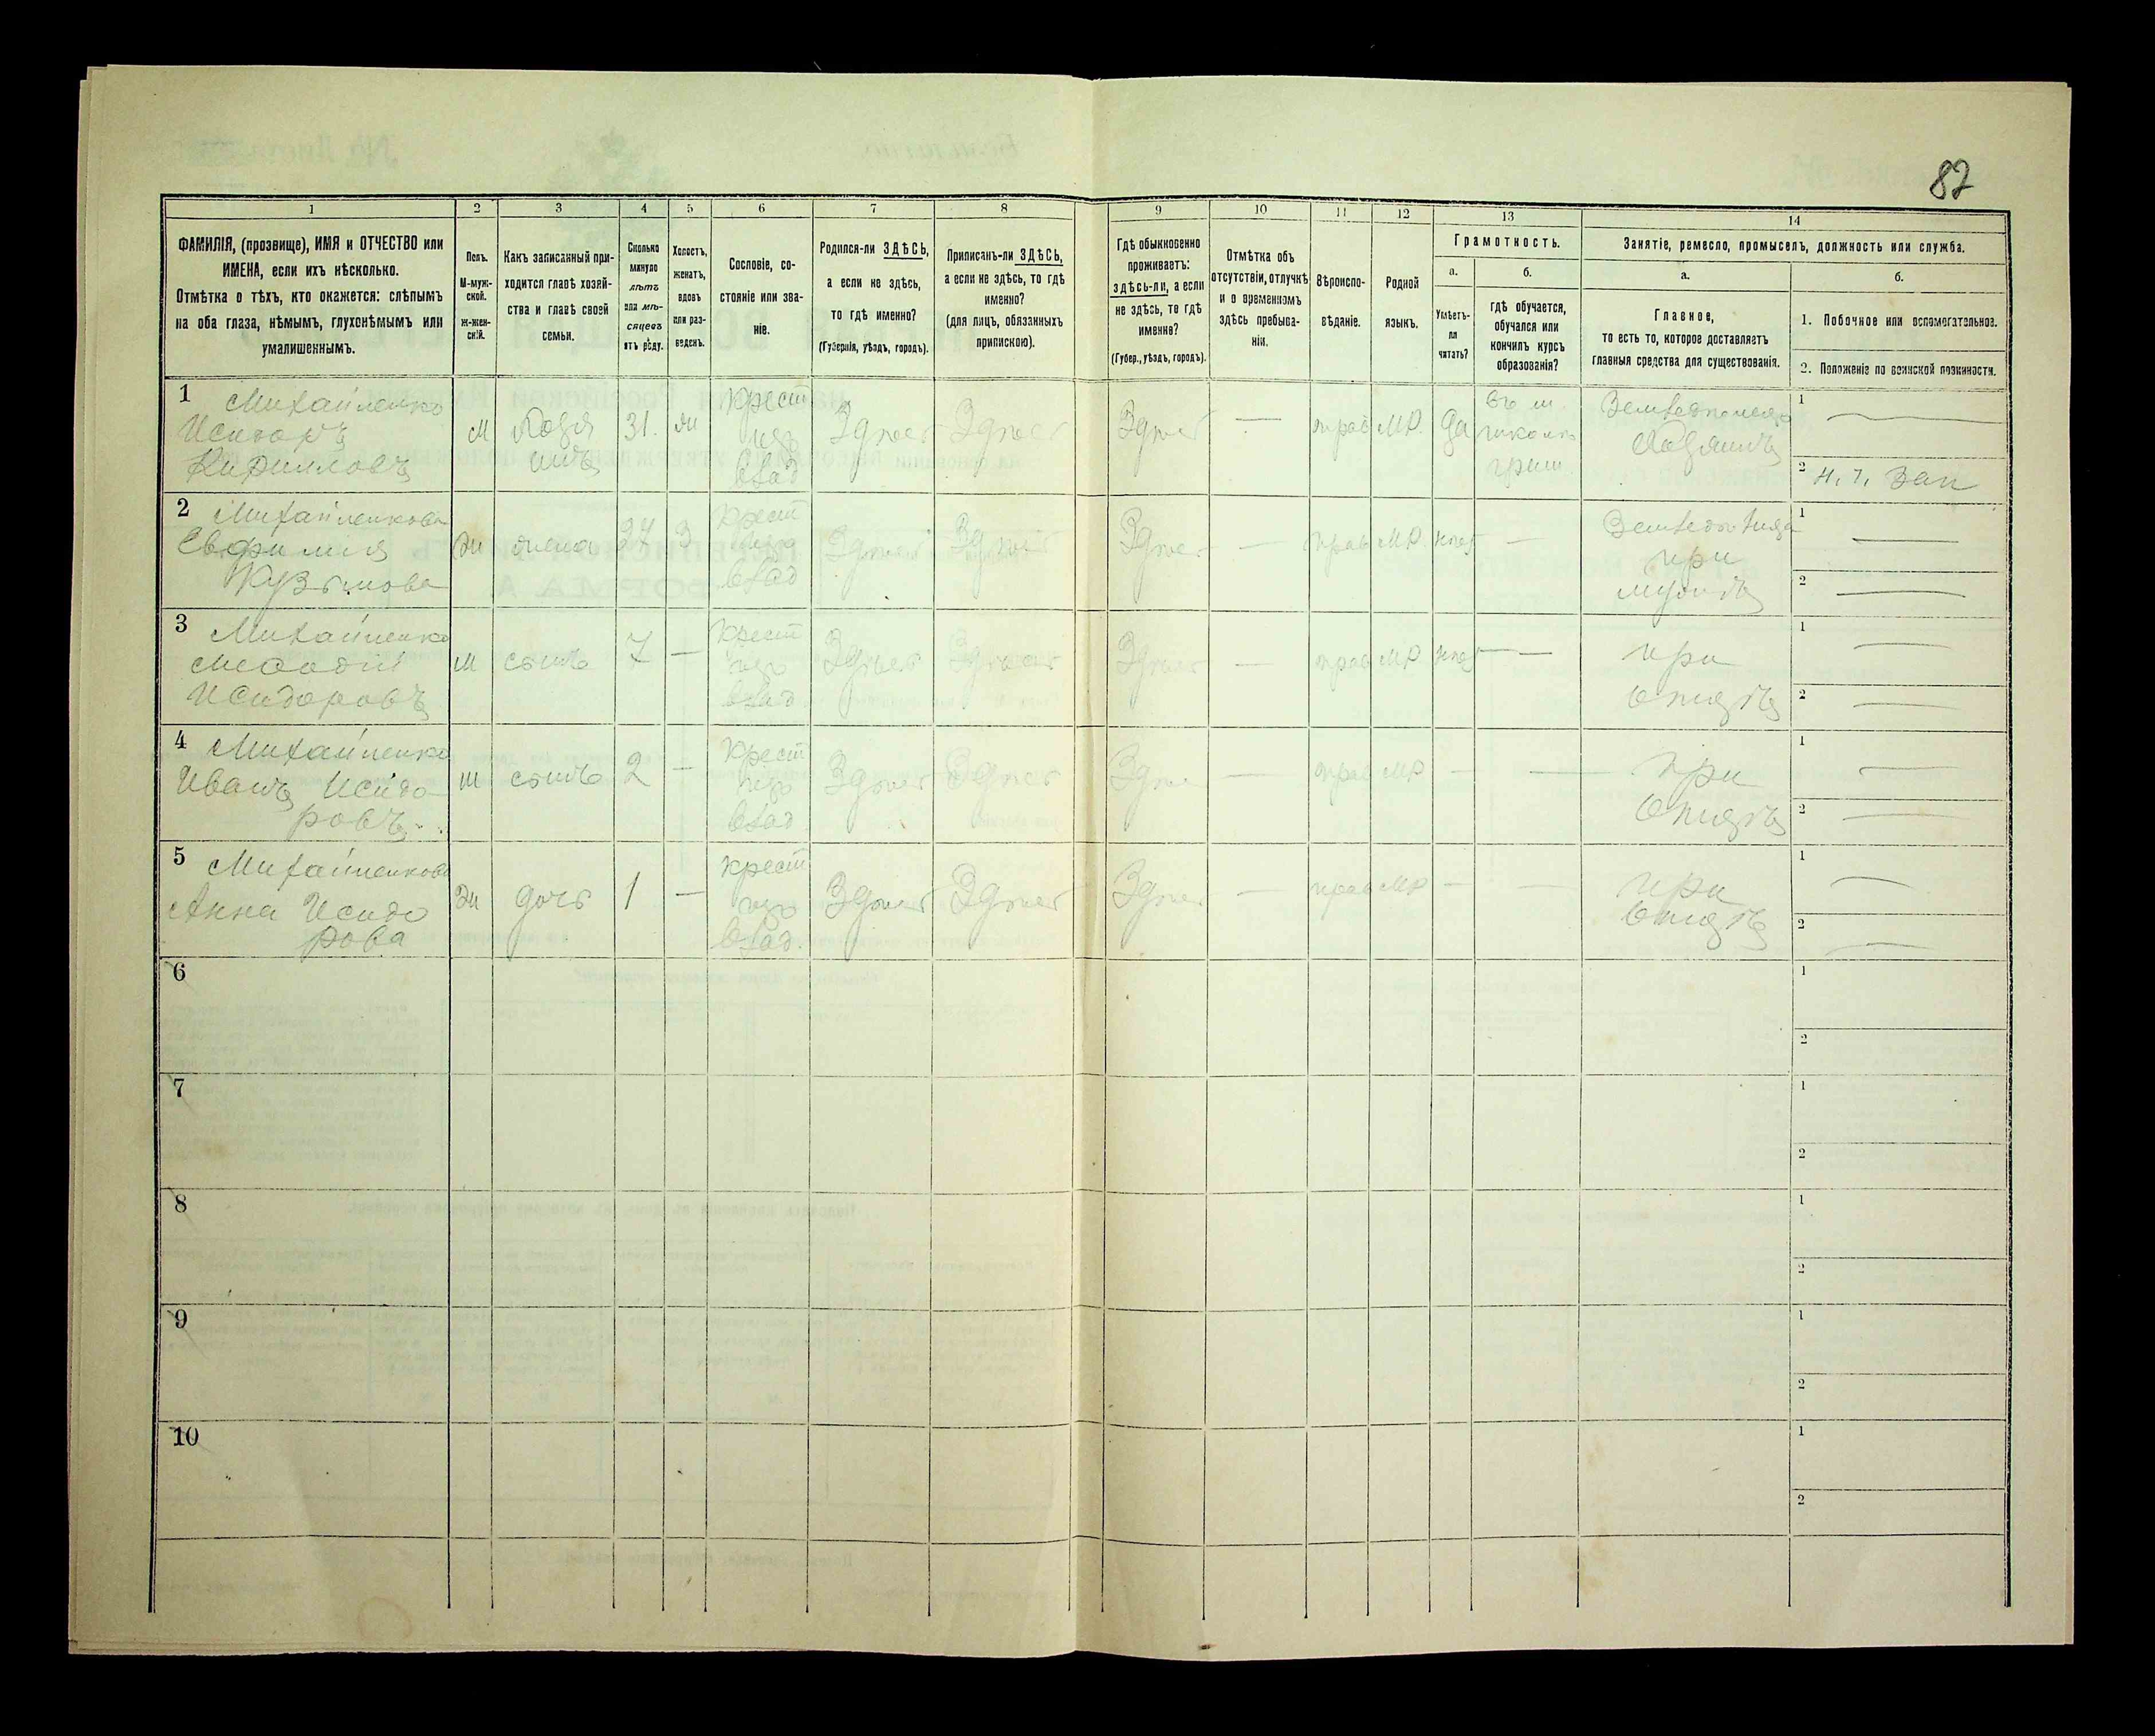 87
1 2 3 4 5 6 7 8 9 10 11 12 13 14
ФАМИЛІЯ, (прозвище), ИМЯ и ОТЧЕСТВО или
ИМЕНА, если ихъ нѣсколько.
Отмѣтка о тѣхъ, кто окажется: слѣпымъ
на оба глаза, нѣмымъ, глухонѣмымъ или
умалишеннымъ.
Полъ.
М-муж-
ской.
Ж-жен-
скій.
Какъ записанный при-
ходится главѣ хозяй-
ства и главѣ своей
семьи.
Сколько
минуло
лѣтъ
или мѣ-
сяцевъ
отъ роду.
Холостъ,
женатъ,
вдовъ
или раз-
веденъ.
Сословіе, со-
стояніе или зва-
ніе.
Родился-ли ЗДѢСЬ,
а если не здѣсь,
то гдѣ именно?
(Губернія, уѣздъ, городъ).
Приписанъ-ли ЗДѢСЬ,
а если не здѣсь, то гдѣ
именно?
(для лицъ, обязанныхъ
припискою).
Гдѣ обыкновенно
проживаетъ:
здѣсь-ли, а если
не здѣсь, то гдѣ
именно?
(Губер., уѣздъ, городъ).
Отмѣтка объ
отсутствіи, отлучкѣ
и о временномъ
здѣсь пребыва-
ніи.
Вѣроиспо-
вѣданіе.
Родной
языкъ.
Грамотность.
а.
Умѣетъ-
ли
читать?
б.
гдѣ обучается,
обучался или
кончилъ курсъ
образованія?
Занятіе, ремесло, промыселъ, должность или служба.
а.
Главное,
то есть то, которое доставляетъ
главныя средства для существованія.
б.
1. Побочное или вспомогательное.
2. Положеніе по воинской повинности.
1 Михайленко
Исидоръ
Кирилловъ
М
хозя
инъ
31.
ж
крест
изъ
влад
Здѣсь
Здѣсь
Здѣсь
—
прав
МР.
да
школѣ
хозяинъ
1 —
2
2 Михайленкова
Евфимія
Кузьмова
ж
жена
27
З
крест
изъ
влад
Здѣсь
Здѣсь
Здѣсь
—
прав
МР.
нѣт
—
при
мужѣ
1 —
2 —
3 Михайленко
Меѳодій
Исидоровъ
М
сынъ
7
—
крест
изъ
влад
Здѣсь
Здѣсь
Здѣсь
—
прав
МР
нѣт
—
при
отцѣ
1 —
2 —
4 Михайленко
Иванъ Исидо
ровъ
м
сынъ
2
—
крест
изъ
влад
Здѣсь
Здѣсь
Здѣсь
—
прав
МР
—
—
при
отцѣ
1 —
2 —
5 Михайленкова
Анна Исидо
рова
ж
дочь
1
—
крест
изъ
влад.
Здѣсь
Здѣсь
Здѣсь
—
прав
МР
—
—
при
отцѣ
1 —
2 —
6
1
2
7
1
2
8
1
2
9
1
2
10
1
2